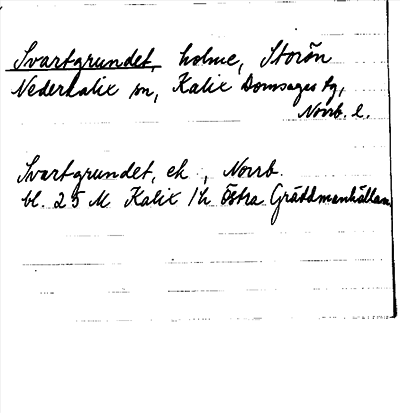 Svartgrundet, holme, Storön
Nederkalix sn, Kalix Domsagas tg,
Norrb. l.
Svartgrundet, ek., Norrb.
bl. 25 M Kalix 1 h Östra Gråddmanhällan